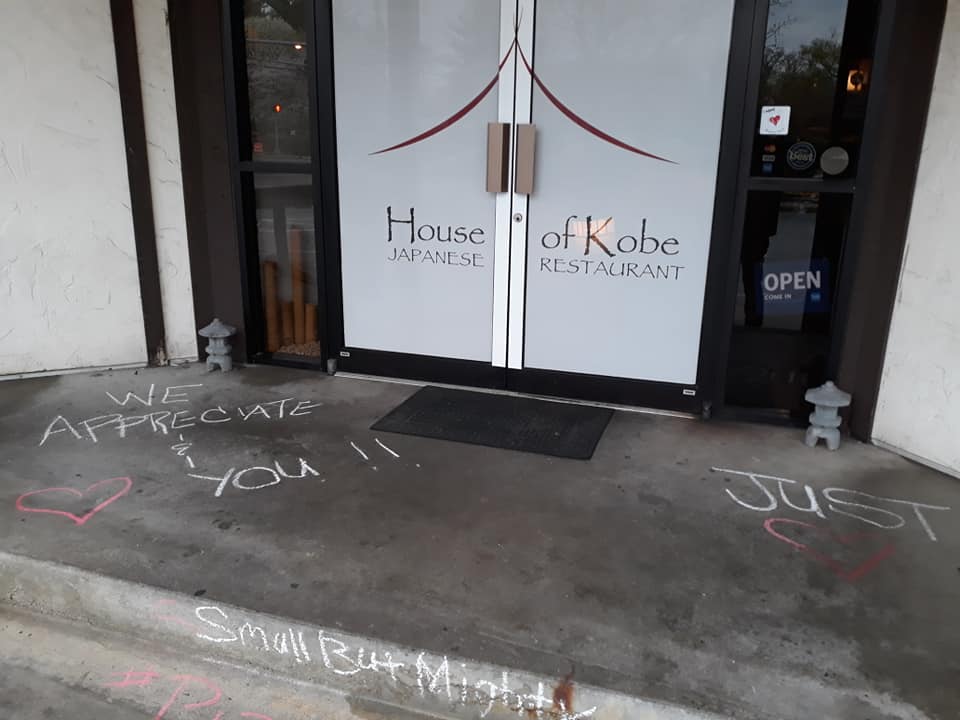 House of Kobe
JAPANESE RESTAURANT
best
OPEN
COME IN
WE
APPRECIATE
&
YOU!!
JUST
Small But Mighty